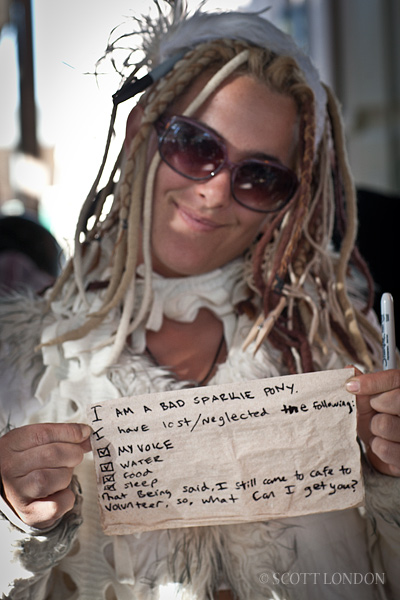 I AM A BAD SPARKLE PONY.
I have lost/neglected the following:
☒ MY VOICE
☒ WATER
☒ FOOD
☒ sleep
That Being said, I still came to cafe to
volunteer, so, what can I get you?
© SCOTT LONDON